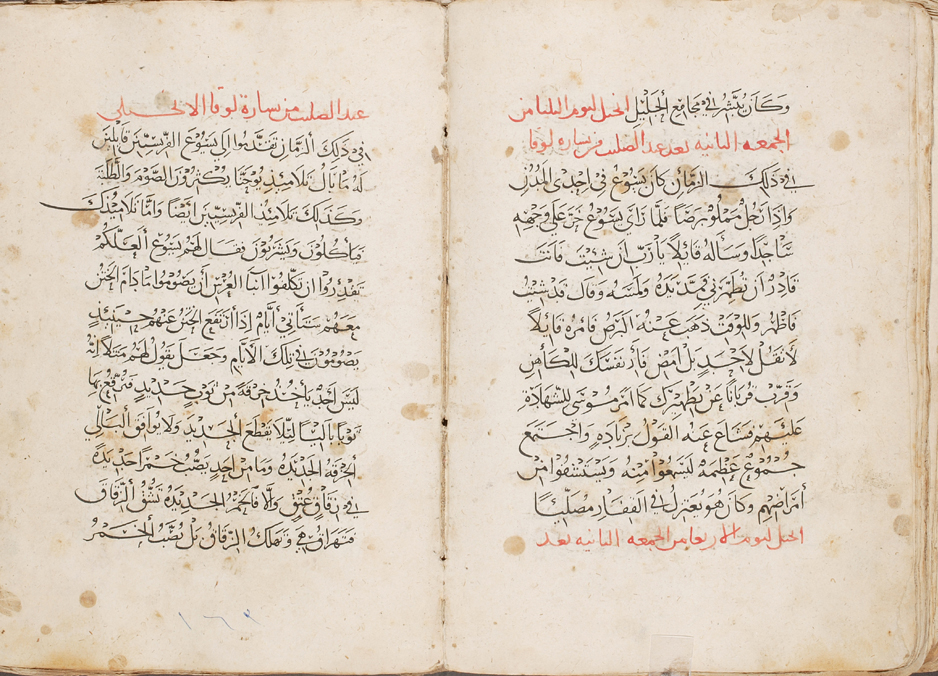 وَكَانَ يُبَشِّرُ فِي مَجَامِعِ الْجَلِيلِ انجيل ليوم الثلثا من
الجمعه الثانيه بعد عيد الصليب من بشارة لوقا
في ذَلِكَ الزَّمَانِ كَانَ يَسُوعُ في إِحْدِى الْمُدُنِ
وَاذَا رَجُلٌ مَمْلُوٌ بَرَصًا فَلَمَّا رَاَى يَسُوعَ خَرَّ عَلَى وَجْهِهِ
سَاجِدًا وَسَأَلَهُ قَايِلًا يَا رَبُّ اِنْ شِيْتَ فَانْتَ
قَادِرٌ أَنْ تُطَهِّرَنِي فَمَدَّ يَدَهُ وَلَمَسَهُ وَقَالَ قَدْ شِيْتُ
فَاطْهُرْ وَلِلْوَقْتِ ذَهَبَ عَنْهُ الْبَرَصُ فَامَرَهُ قَايِلًا
لَا تَقُلْ لِاَحَدٍ بَلْ امْضِ فَأَرِ نَفْسَكَ لِلْكَاهِنِ
وَقَرِّبْ قُرْبَانًا عَنْ تَطْهِيرِكَ كَمَا امَرَ مُوسَى لِلشَّهَادَةِ
عَلَيْهِمْ فَشَاعَ عَنْهُ الْقَوْلُ بِزِيَادَهٍ وَاجْتَمَعَ
جُمُوعٌ عَظِيمَهٌ لِيَسْمَعُوا مِنْهُ وَيَسْتَشْفُوا مِنْ
أَمْرَاضِهِمْ وَكَانَ هُوَ يَعْتَزِلُ فِي الْقِفَارِ مُصَلِّيًا
انجيل ليوم الاربعا من الجمعه الثانيه بعد
عيد الصليب من بشارة لوقا الانجيلي
في ذَلِكَ الزَّمَانِ تَقَدَّمُوا اِلَى يَسُوعَ الْفَرِيسِيِّينَ قَايِلِينَ
لَهُ مَا بَالُ تَلَامِيذِ يُوحَنَّا يُكْثِرُونَ الصَّوْمَ وَالطَّلِبَةَ
وَكَذَلِكَ تَلَامِيذُ الْفَرِيسِيِّينَ ايْضًا وَامَّا تَلَامِيذُكَ
فَيَأْكُلُونَ وَيَشْرَبُونَ فَقَالَ لَهُمْ يَسُوعُ أَلَعَلَّكُمْ
تَقْدِرُوا ان تُكَلِّفُوا ابْنَا الْعُرْسِ أَنْ يَصُومُوا مَا دَامَ الْخَتَنُ
مَعَهُمْ سَتَأْتِي أَيَّامٌ إِذَا ارْتَفَعَ الْخَتَنُ عَنْهُمْ حِينَيِذٍ
يَصُومُونَ فِي تِلْكَ الْأَيَّامِ وَجَعَلَ يَقُولُ لَهُمْ مَثَلًا اِنَّهُ
لَيْسَ اَحَدٌ يَأْخُذُ خِرْقَةً مِنْ ثَوْبٍ جَدِيدٍ فَيُرَقِّعُ بِهَا
ثَوْبًا بَالِيًا لِيَلَّا يَقْطَعَ الْجَدِيدَ وَلَا يُوَافِقُ الْبَالِي
الْخِرْقَهُ الْجَدِيدَهُ وَمَا مِنْ اَحَدٍ يَصُبُّ خَمْرًا جَدِيدَهً
في زِقَاقٍ عُتُقٍ وَاِلَّا فَالْخَمْرُ الْجَدِيدَهُ تَشُقُّ الزِّقَاقَ
فَتُهَرَاقُ هِيَ وَتَهْلِكُ الزِّقَاقُ بَلْ تُصَبُّ الْخَمْرُ